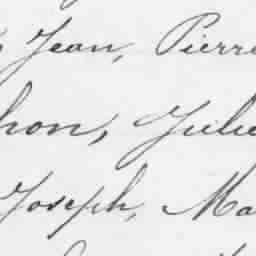 Jean, Pierre
hon, Julie
Joseph, Ma